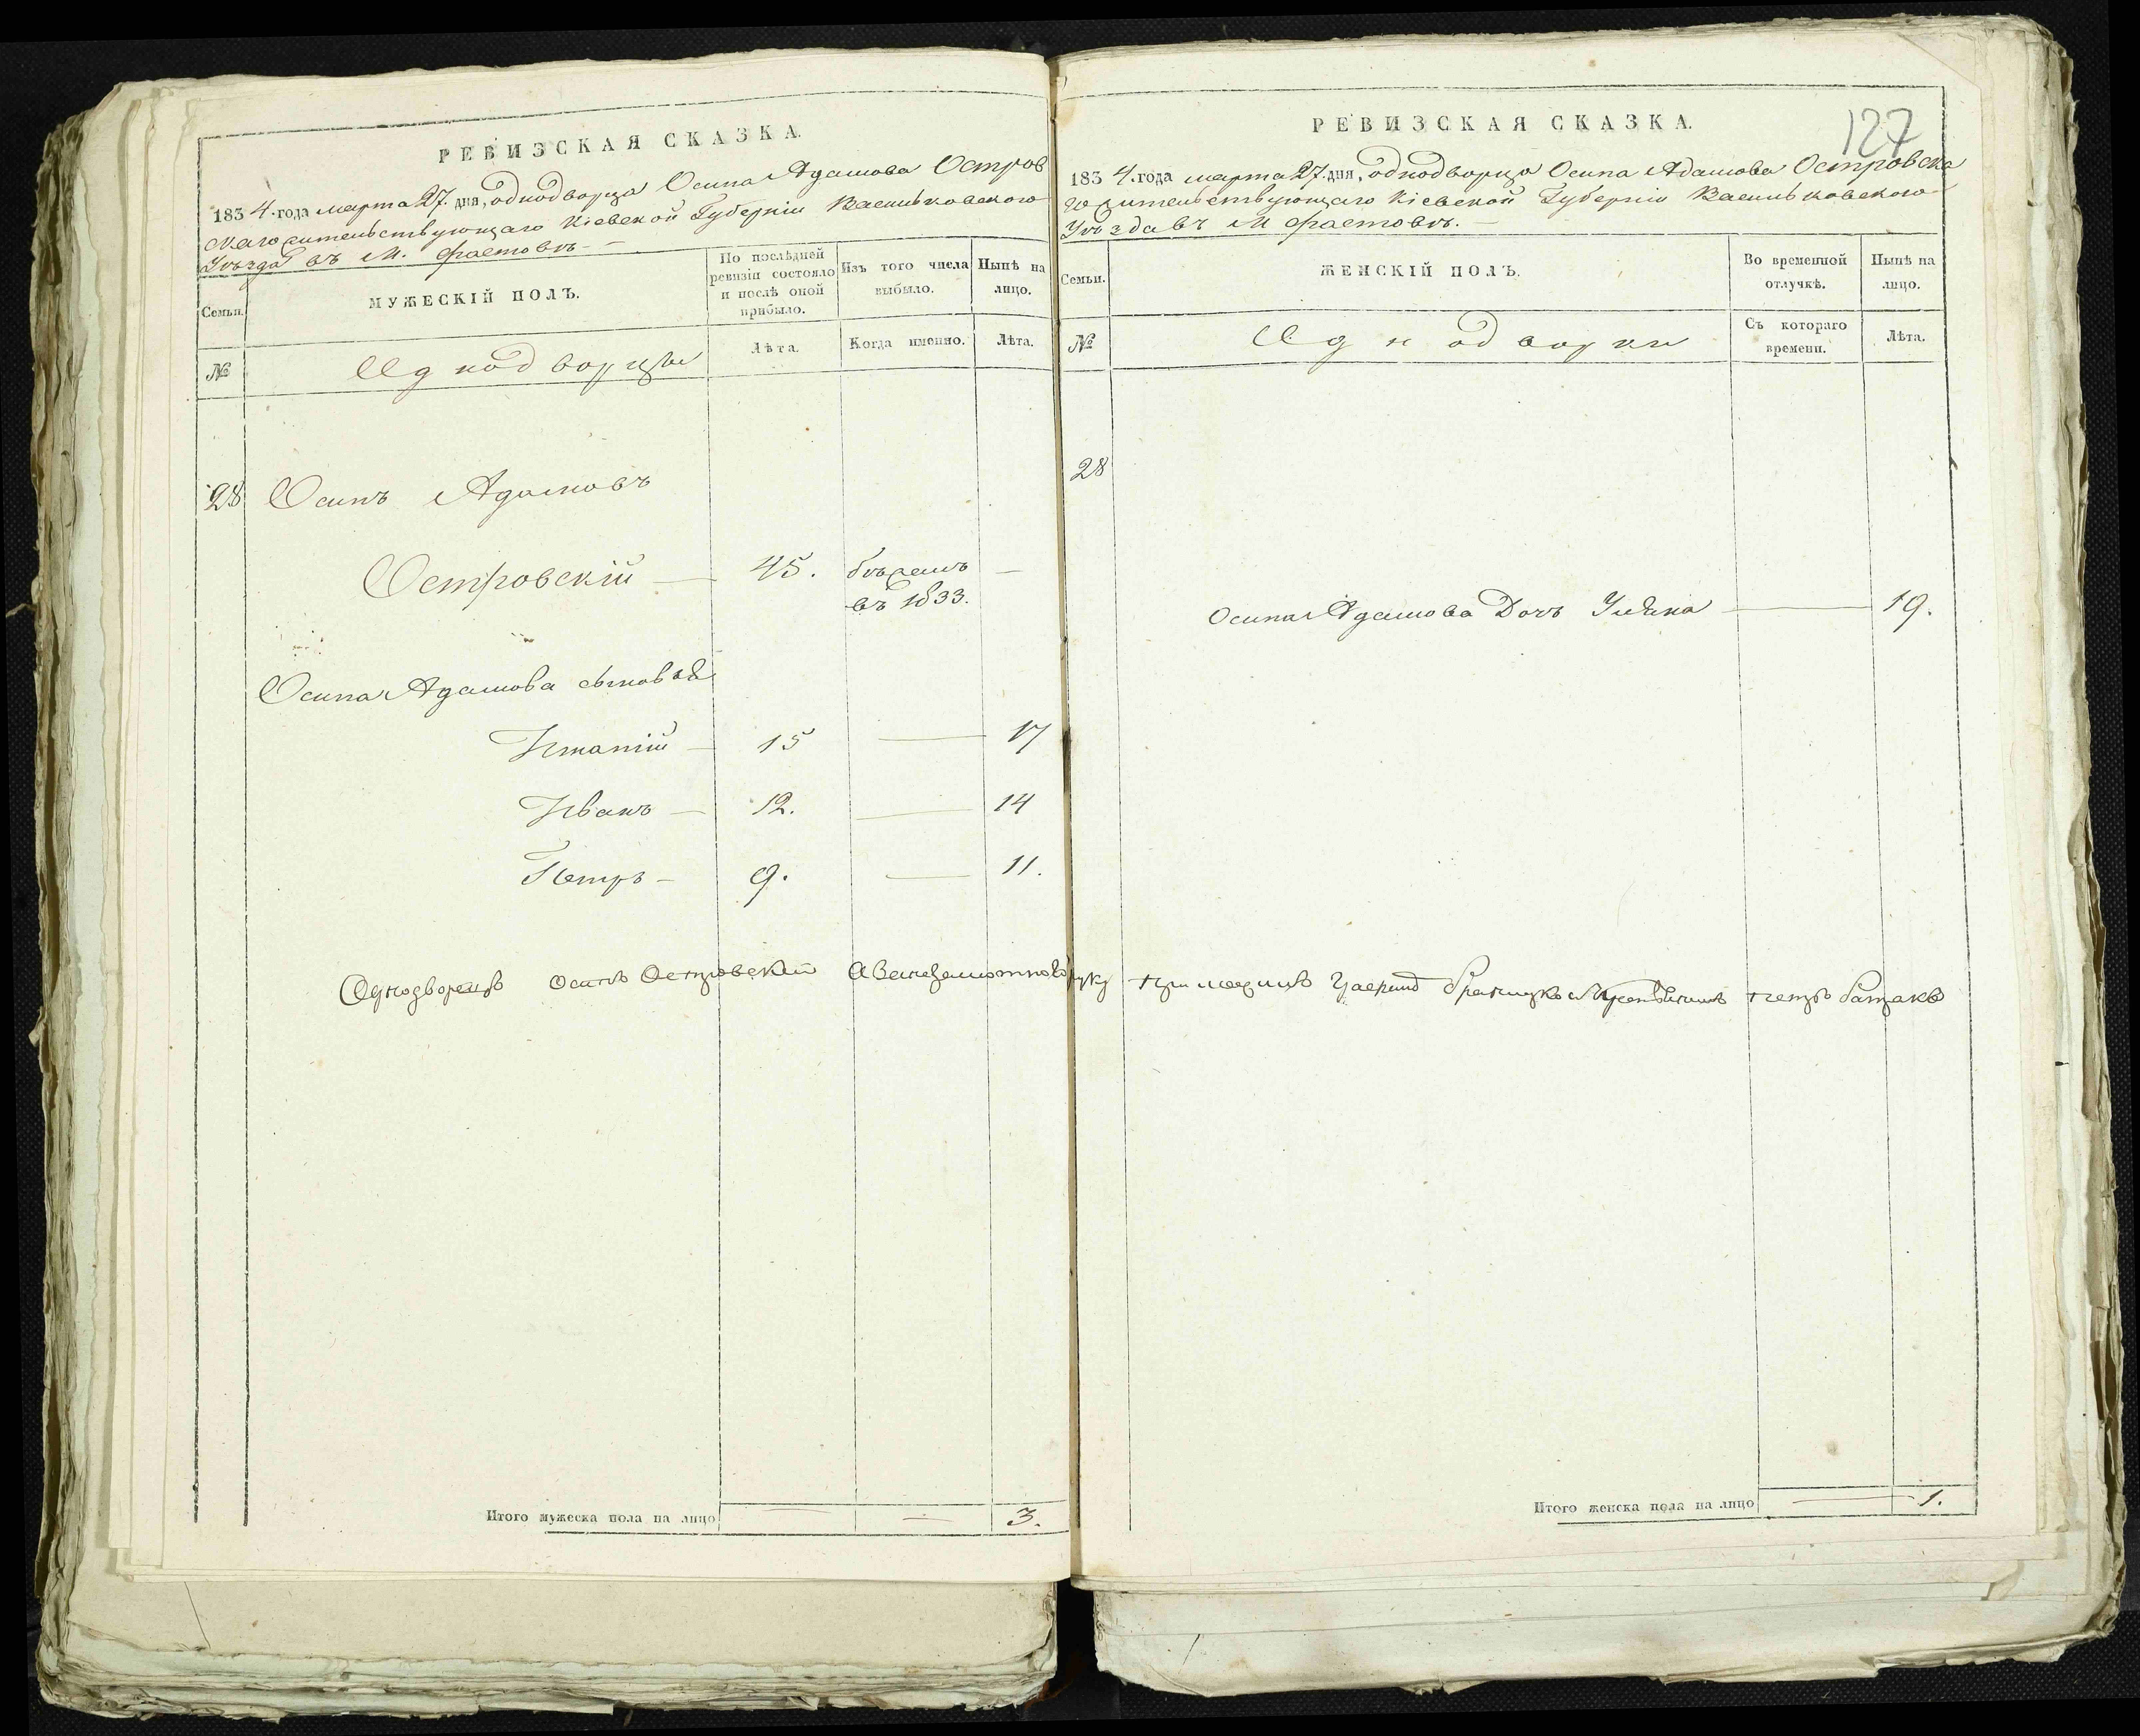 РЕВИЗСКАЯ СКАЗКА.
1834. года марта 27. дня, однодворца Осипа Адамова Остров
скаго жительствующаго Кіевской Губерніи Васильковского
Уѣзда въ М. Фастовѣ
Семьи.
МУЖЕСКІЙ ПОЛЪ.
По послѣдней ревизіи состояло и послѣ оной прибыло.
Изъ того числа выбыло.
Нынѣ на лицо.
№
Однодворцы
Лѣта.
Когда именно.
Лѣта.
28 Осипъ Адамовъ
Островскій — 45. бѣжалъ —
въ 1833.
Осипа Адамова сыновья
Игнатій — 15 — 17
Иванъ — 12. — 14
Петръ — 9. — 11.
Однодворецъ Осипъ Островский
Итого мужеска пола на лицо — — 3.
127
РЕВИЗСКАЯ СКАЗКА.
1834. года марта 27. дня, однодворца Осипа Адамова Островска
го жительствующаго Кіевской Губерніи Васильковского
Уѣзда въ М Фастовѣ. —
Семьи.
ЖЕНСКІЙ ПОЛЪ.
Во временной отлучкѣ.
Нынѣ на лицо.
№
Однодворки
Съ котораго времени.
Лѣта.
28
Осипа Адамова Дочь Уліяна — 19.
Итого женска пола на лицо — 1.